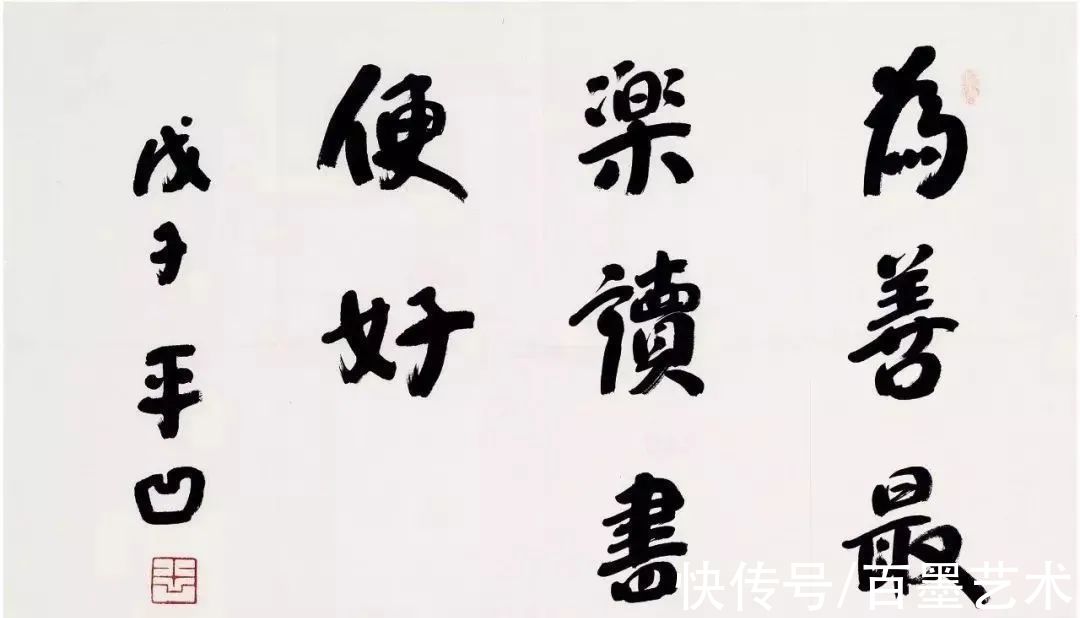 為善最
楽讀書
便好
戊子平凹
快传号/百墨艺术